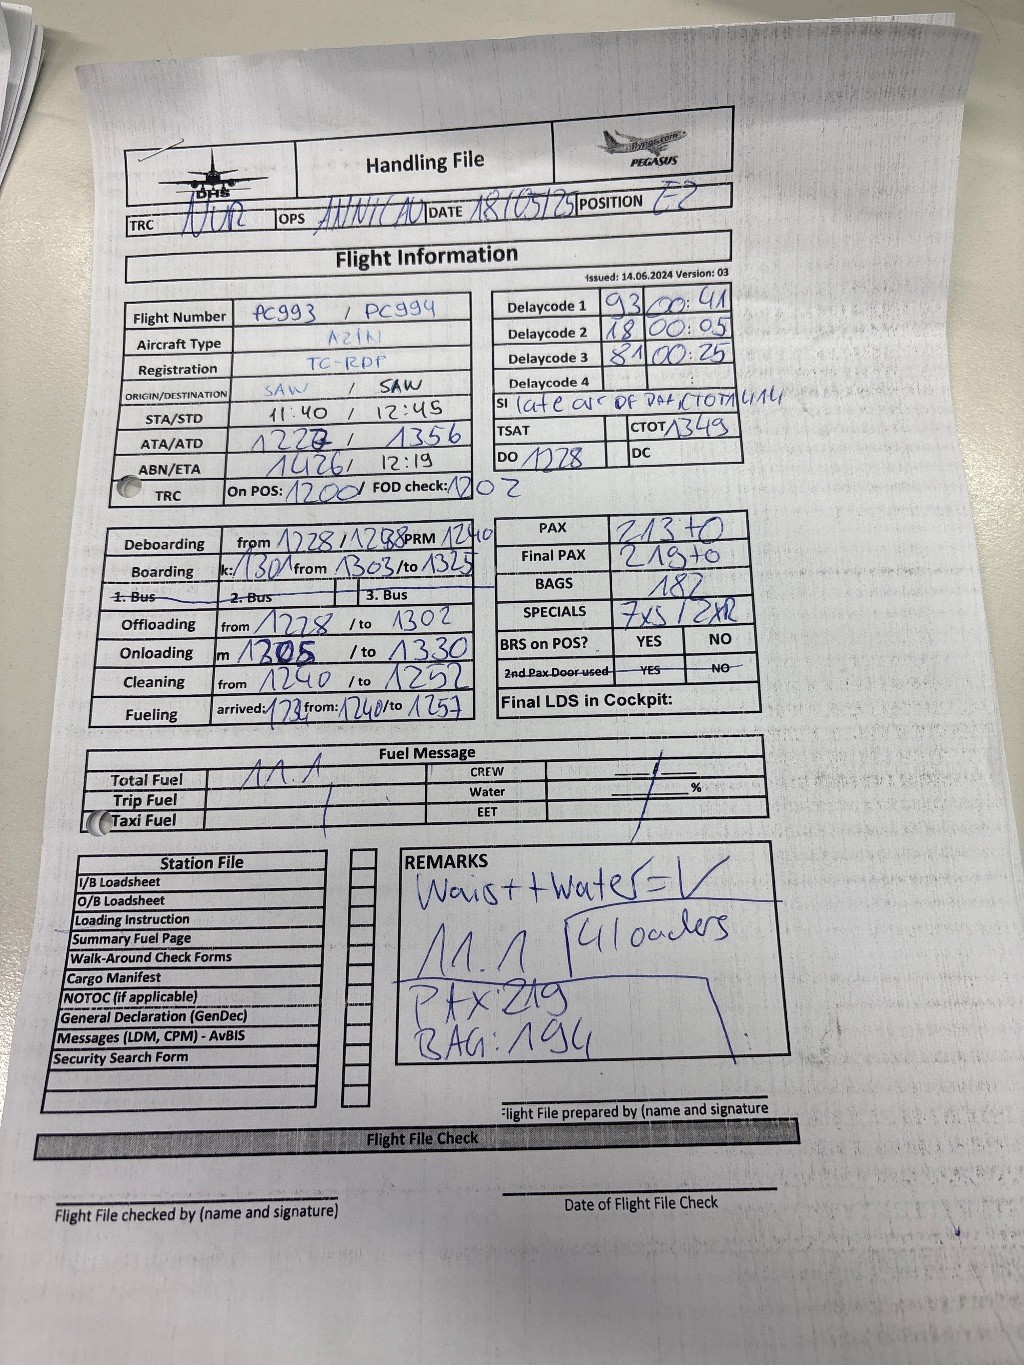 DHS
Handling File
flypgs.com
PEGASUS
TRC NUR OPS DATE 18/05/25 POSITION E2
Flight Information
Issued: 14.06.2024 Version: 03
Flight Number PC993 / PC994
Aircraft Type A21N
Registration TC-RDP
ORIGIN/DESTINATION SAW / SAW
STA/STD 11:40 / 12:45
ATA/ATD 1227 / 1356
ABN/ETA 1426 / 12:19
TRC On POS: 1200 / FOD check: 1202
Delaycode 1 93 00:41
Delaycode 2 18 00:05
Delaycode 3 81 00:25
Delaycode 4 :
SI late arr OF CTOT 1414
TSAT CTOT 1349
DO 1228 DC
Deboarding from 1228 / 1238 PRM 1240
Boarding k: 1301 from 1303 /to 1325
1. Bus 2. Bus 3. Bus
Offloading from 1228 / to 1302
Onloading m 1305 / to 1330
Cleaning from 1240 / to 1252
Fueling arrived: from: 1240 /to 1257
PAX 213+0
Final PAX 219+0
BAGS 182
SPECIALS 7xS / 2xR
BRS on POS? YES NO
2nd Pax Door used YES NO
Final LDS in Cockpit:
Fuel Message
Total Fuel 11.1 CREW
Trip Fuel Water %
Taxi Fuel EET
Station File
I/B Loadsheet
O/B Loadsheet
Loading Instruction
Summary Fuel Page
Walk-Around Check Forms
Cargo Manifest
NOTOC (if applicable)
General Declaration (GenDec)
Messages (LDM, CPM) - AvBIS
Security Search Form
REMARKS
Waist + Water = V
11.1 4 loaders
PAX: 219
BAG: 194
Flight File prepared by (name and signature
Flight File Check
Flight File checked by (name and signature)
Date of Flight File Check